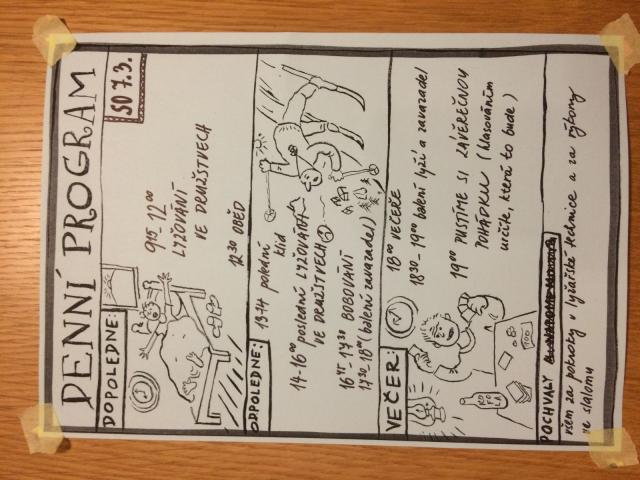 DENNÍ PROGRAM
SO 7.3.
DOPOLEDNE:
9 15 - 12 00
LYŽOVÁNÍ
VE DRUŽSTVECH
12 30 OBĚD
ODPOLEDNE:
13-14 polední
klid
14-16 00 poslední LYŽOVÁNÍ
VE DRUŽSTVECH
16 15 - 17 30 BOBOVÁNÍ
17 30 - 18 00 (balení zavazadel)
VEČER:
18 00 VEČEŘE
18 30 - 19 00 balení lyží a zavazadel
19 00 PUSTÍME SI ZÁVĚREČNOU
POHÁDKU (hlasováním
určíte, která to bude)
KOFOLA
POCHVALY
všem za pokroky v lyžařské technice a za výkony
ve slalomu